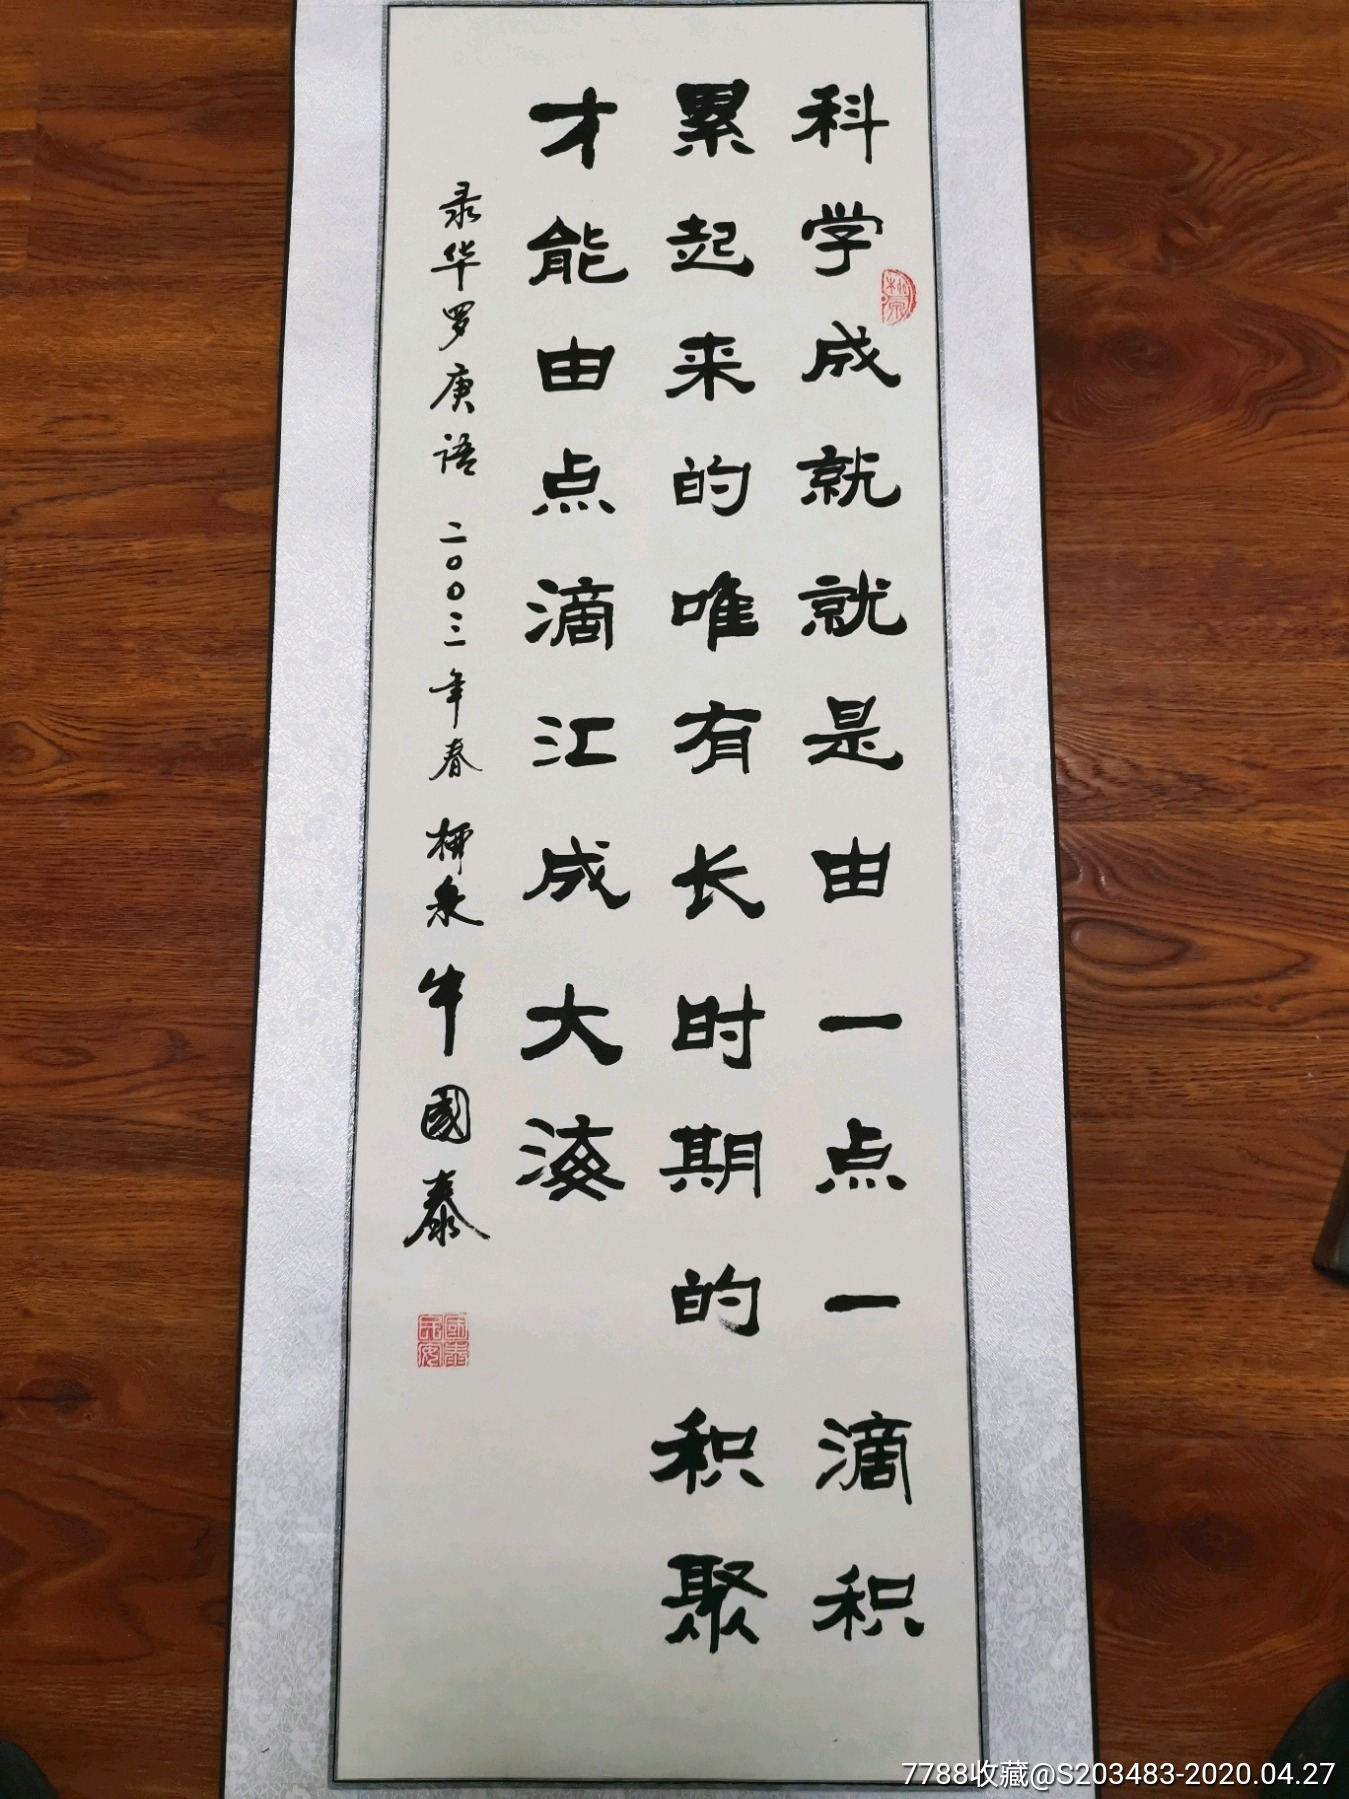 科学成就就是由一点一滴积
累起来的唯有长时期的积聚
才能由点滴江成大海
录华罗庚语 二〇〇三年春 柳泉 牛國泰
國泰民安
7788收藏@S203483-2020.04.27